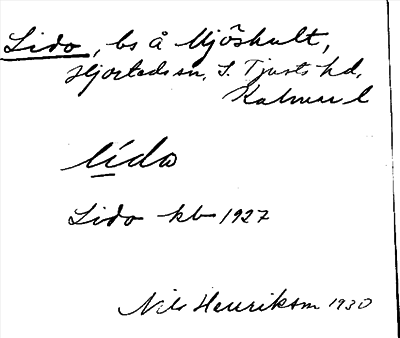 Lido, bs å Mjöshult,
Hjorteds sn, S. Tjusts hd,
Kalmar l
lída
Lido kb 1927
Nils Henrikson 1930